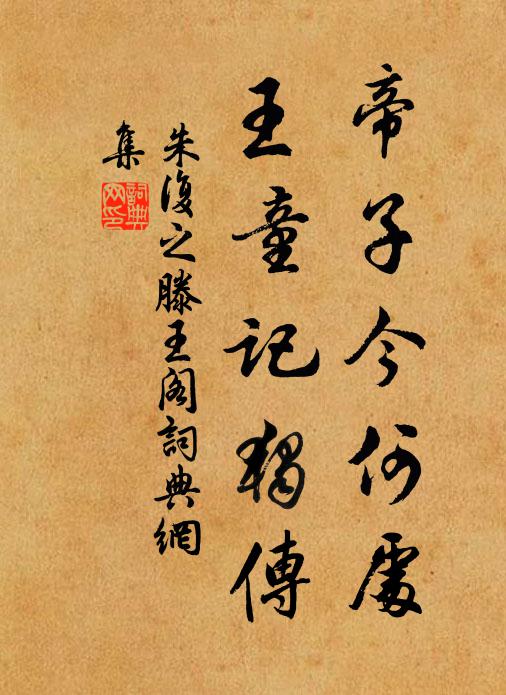 帝子今何處
王童記獨傳
朱復之滕王阁詞典網
集
詞典网印